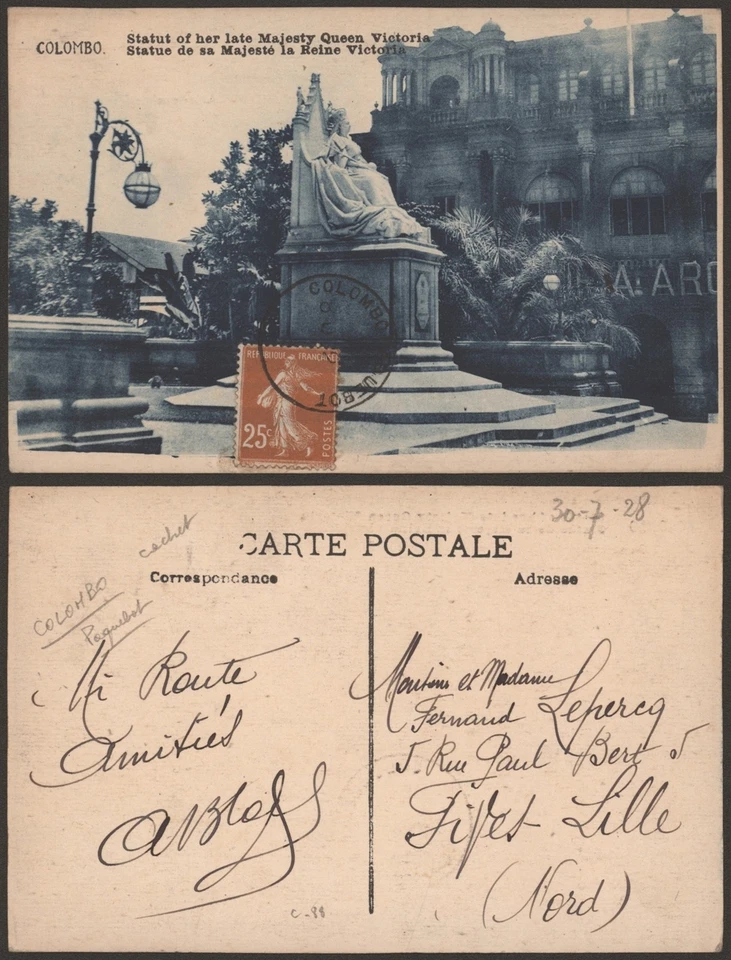 COLOMBO.
Statut of her late Majesty Queen Victoria
Statue de sa Majesté la Reine Victoria
A. ARO
COLOMBO
REPUBLIQUE FRANÇAISE
25c
POSTES
30-7-28
cachet
CARTE POSTALE
Correspondance
Adresse
COLOMBO
Paquebot
Mi Route
Amitiés
Monsieur et Madame
Fernand Lepercq
5 Rue Paul Bert 5
Fives-Lille
(Nord)
C-88